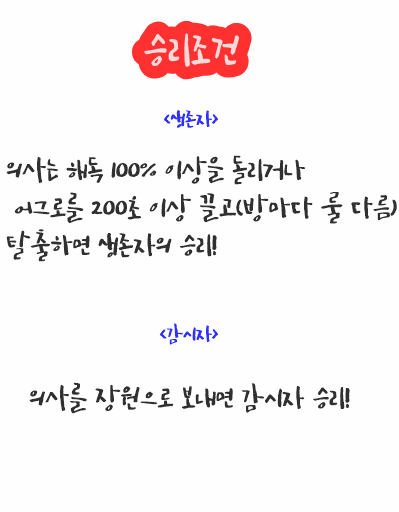 승리조건
<생존자>
의사는 해독 100% 이상을 돌리거나
어그로를 200초 이상 끌고(방마다 룰 다름)
탈출하면 생존자의 승리!
<감시자>
의사를 장원으로 보내면 감시자 승리!